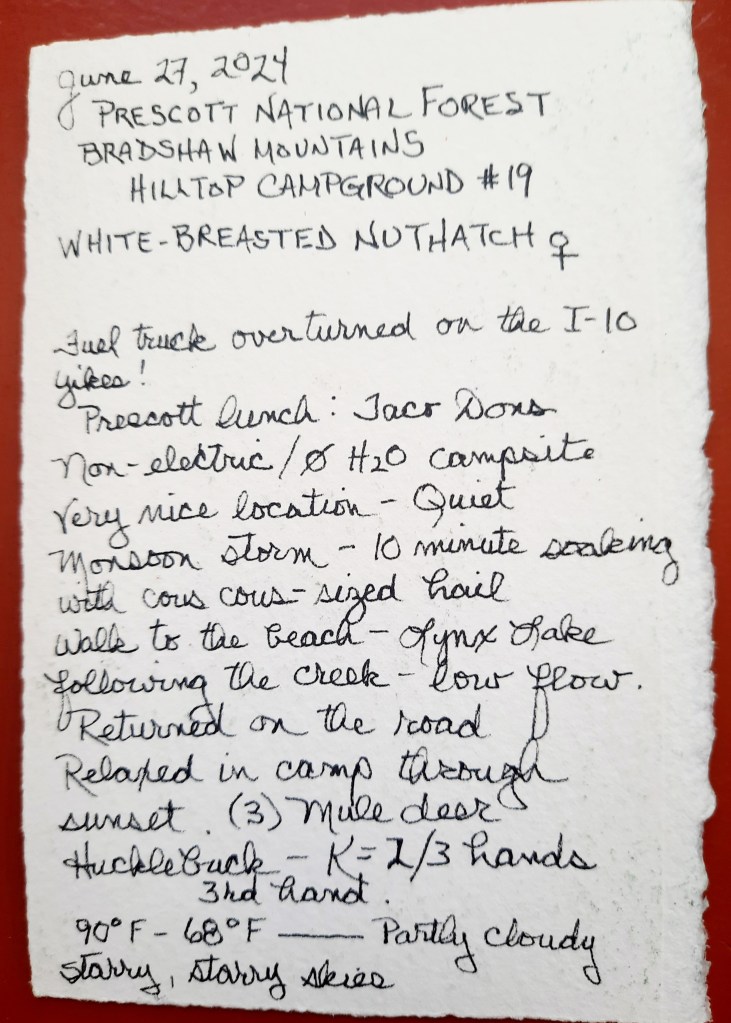 June 27, 2024
PRESCOTT NATIONAL FOREST
BRADSHAW MOUNTAINS
HILLTOP CAMPGROUND #19
WHITE-BREASTED NUTHATCH ♀
Fuel truck overturned on the I-10
yikes!
Prescott lunch: Taco Dons
Non-electric/Ø H2O campsite
Very nice location - Quiet
Monsoon storm - 10 minute soaking
with cous cous-sized hail
Walk to the beach - Lynx Lake
following the creek - low flow.
Returned on the road
Relaxed in camp through
sunset. (3) Mule deer
Hucklebuck - K= 2/3 hands
3rd hand.
90°F - 68°F —— Partly cloudy
starry, starry skies